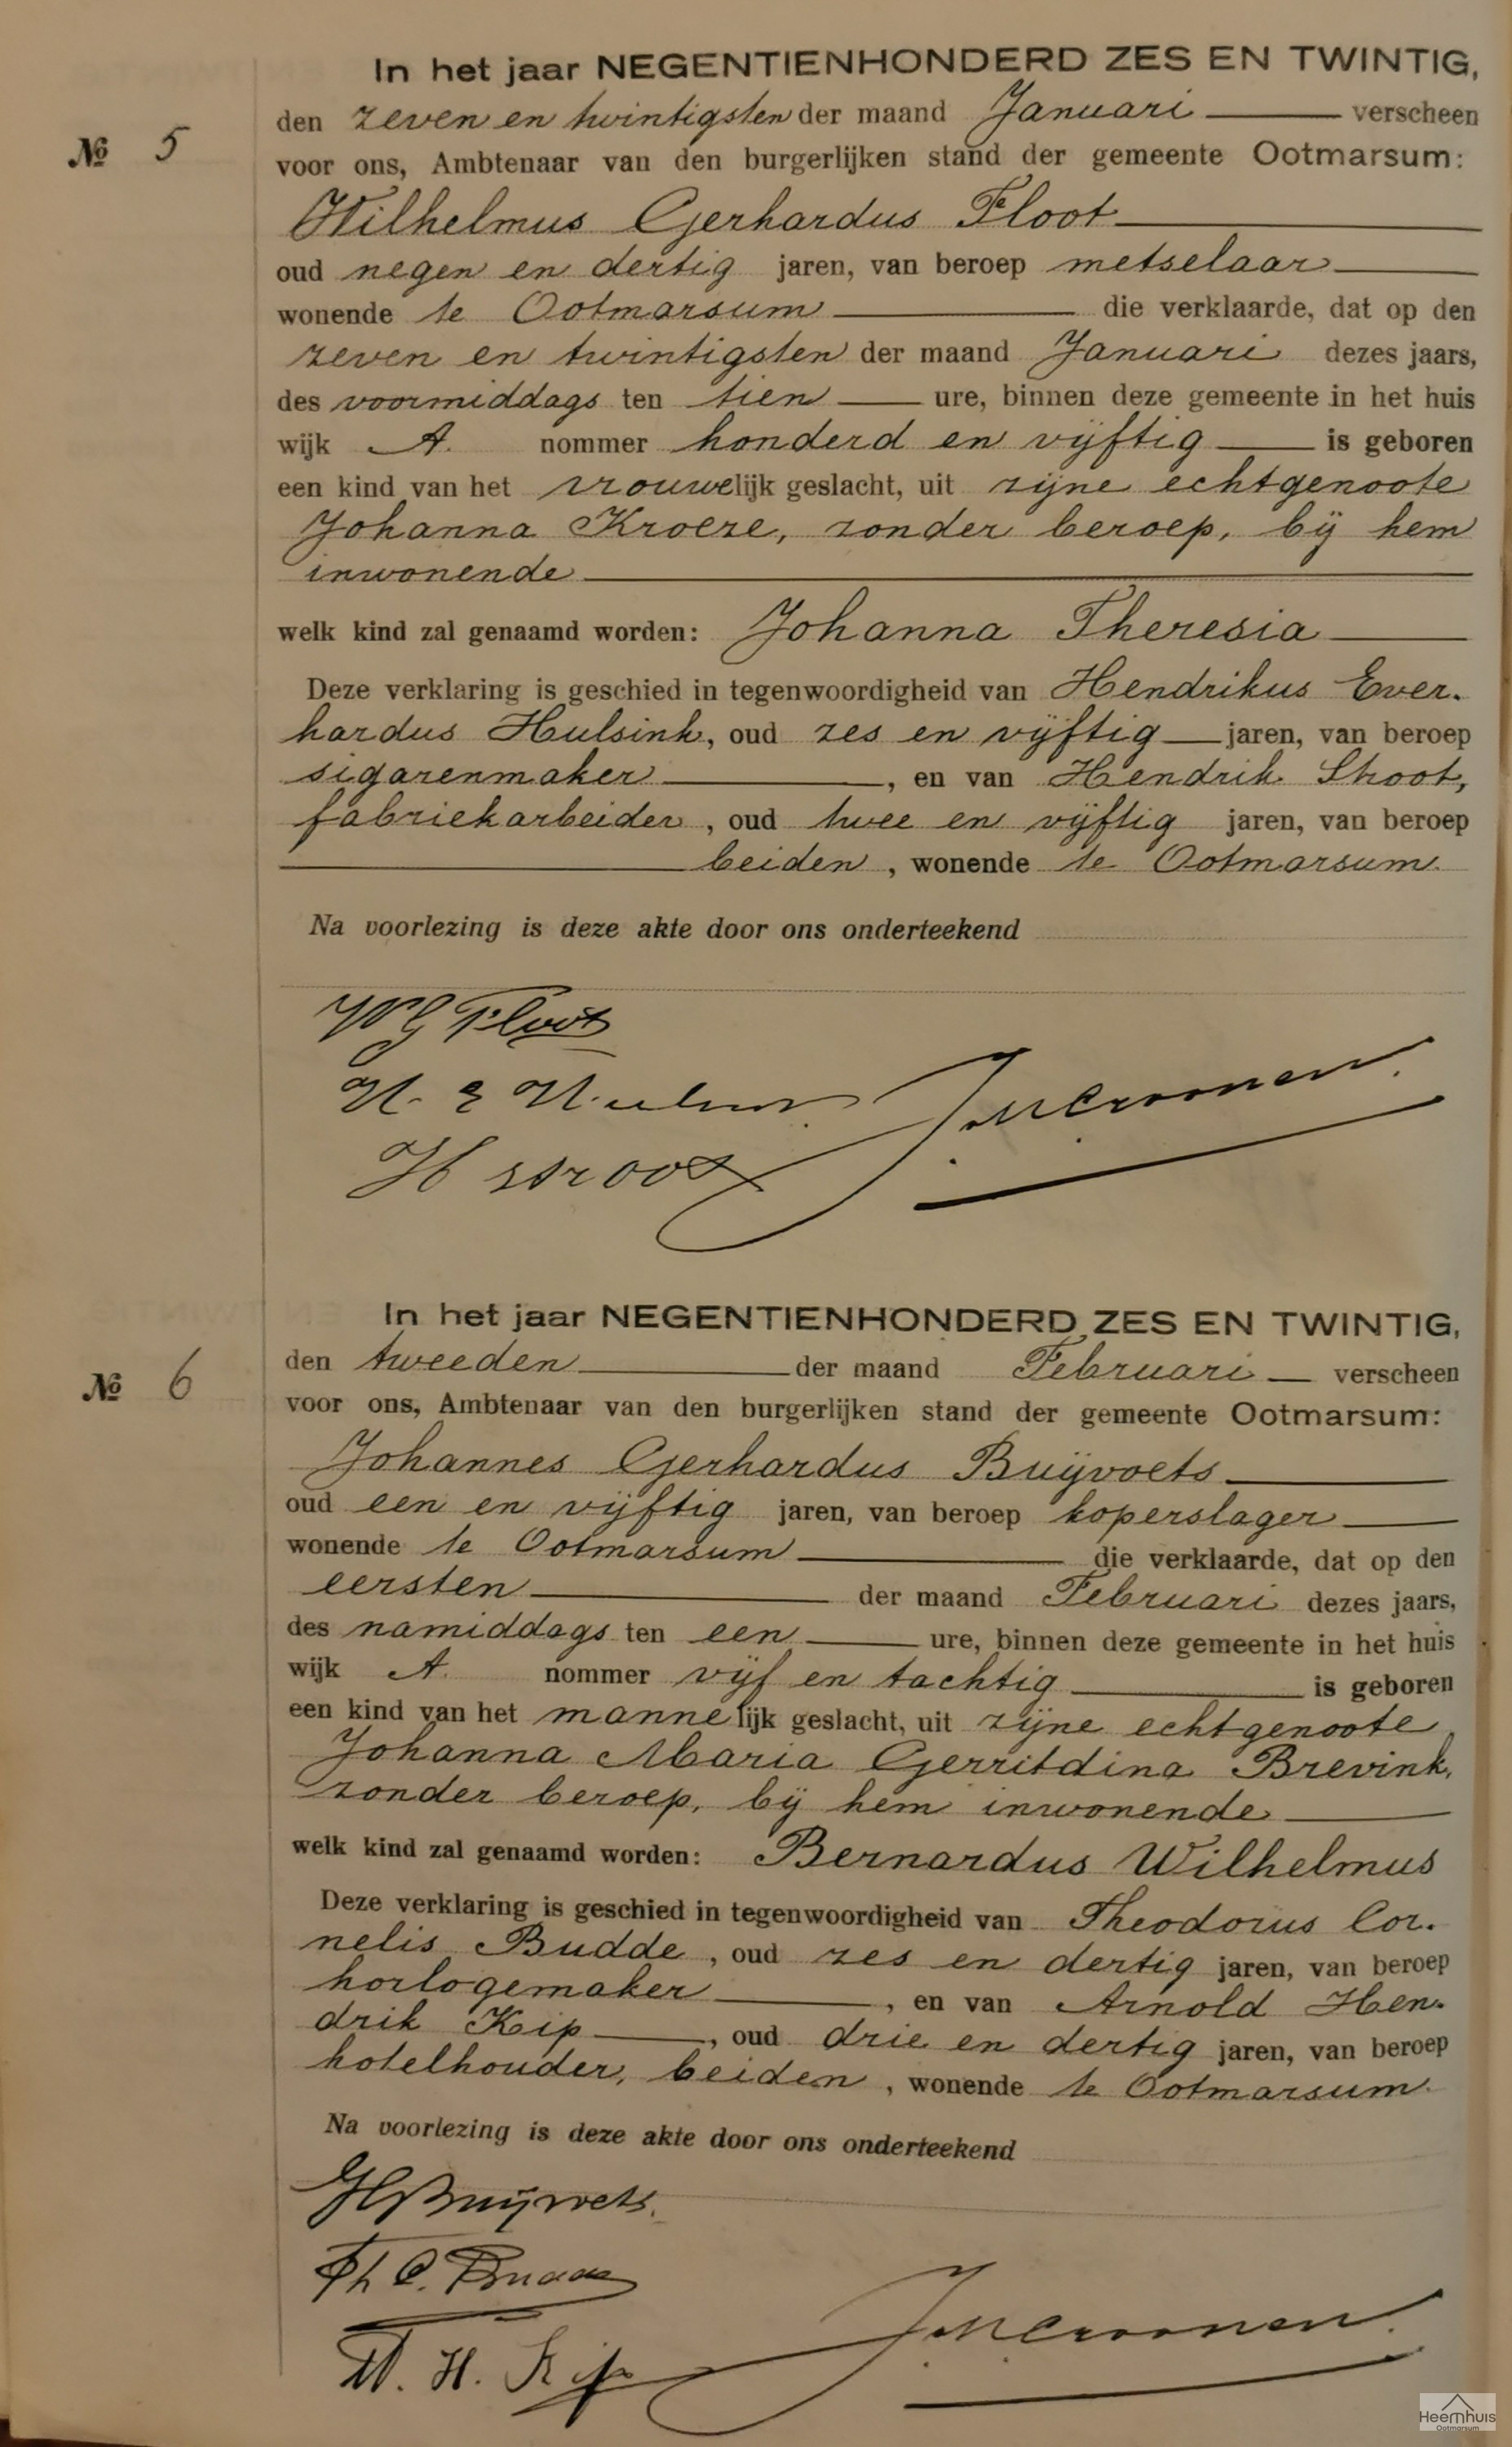 In het jaar NEGENTIENHONDERD ZES EN TWINTIG,
den zeven en twintigsten der maand Januari verscheen
№ 5
voor ons, Ambtenaar van den burgerlijken stand der gemeente Ootmarsum:
Wilhelmus Gerhardus Floot
oud negen en dertig jaren, van beroep metselaar
wonende te Ootmarsum die verklaarde, dat op den
zeven en twintigsten der maand Januari dezes jaars,
des voormiddags ten tien ure, binnen deze gemeente in het huis
wijk A. nommer honderd en vijftig is geboren
een kind van het vrouwelijk geslacht, uit zijne echtgenoote
Johanna Kroeze, zonder beroep, bij hem
inwonende
welk kind zal genaamd worden: Johanna Theresia
Deze verklaring is geschied in tegenwoordigheid van Hendrikus Ever-
hardus Hulsink, oud zes en vijftig jaren, van beroep
sigarenmaker, en van Hendrik Stroot,
fabriekarbeider, oud twee en vijftig jaren, van beroep
beiden, wonende te Ootmarsum.
Na voorlezing is deze akte door ons onderteekend
W G Floot
H. E
H stroot
In het jaar NEGENTIENHONDERD ZES EN TWINTIG,
den tweeden der maand Februari verscheen
№ 6
voor ons, Ambtenaar van den burgerlijken stand der gemeente Ootmarsum:
Johannes Gerhardus Buijvoets
oud een en vijftig jaren, van beroep koperslager
wonende te Ootmarsum die verklaarde, dat op den
eersten der maand Februari dezes jaars,
des namiddags ten een ure, binnen deze gemeente in het huis
wijk A. nommer vijf en tachtig is geboren
een kind van het mannelijk geslacht, uit zijne echtgenoote
Johanna Maria Gerritdina Brevink,
zonder beroep, bij hem inwonende
welk kind zal genaamd worden: Bernardus Wilhelmus
Deze verklaring is geschied in tegenwoordigheid van Theodorus Cor-
nelis Budde, oud zes en dertig jaren, van beroep
horlogemaker, en van Arnold Hen-
drik Kip, oud drie en dertig jaren, van beroep
hotelhouder, beiden, wonende te Ootmarsum.
Na voorlezing is deze akte door ons onderteekend
Buijvoets.
Th C. Budde
A. H. Kip
Heemhuis
Ootmarsum